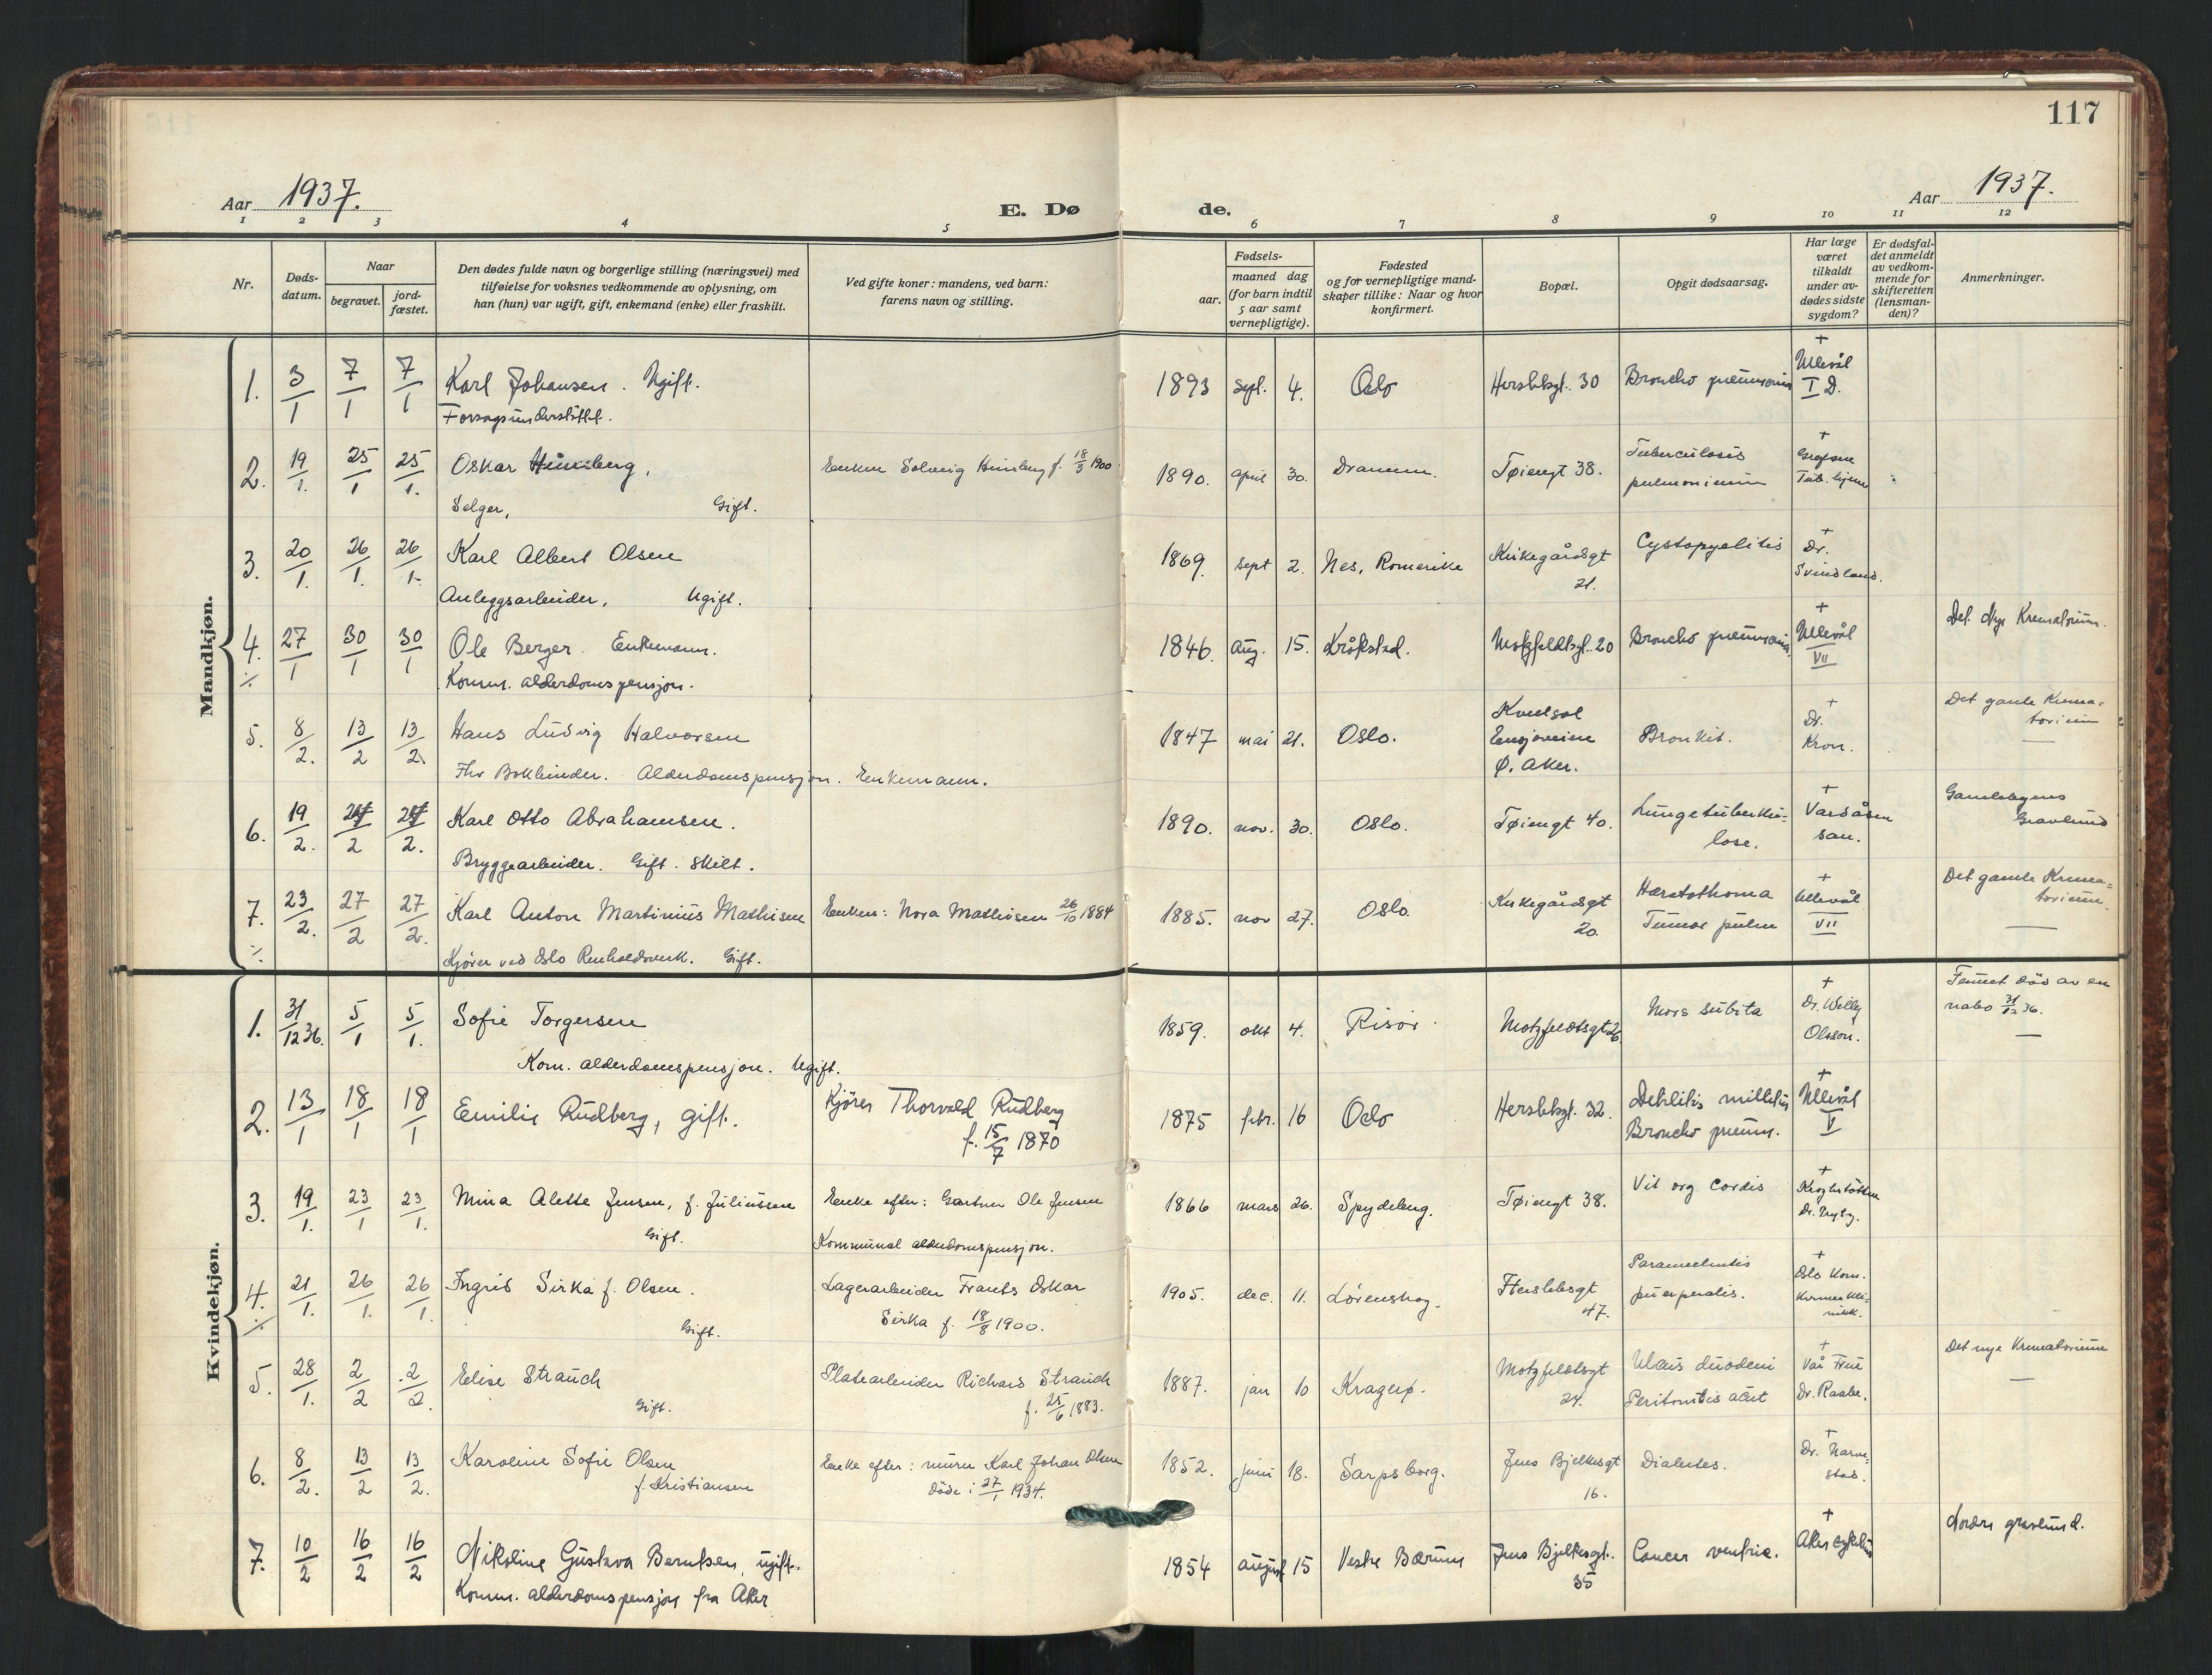 117
Aar 1937.
E. Dø de.
Aar 1937.
1 2 3 4 5 6 7 8 9 10 11 12
Nr.
Døds-
datum.
Naar
begravet.
jord-
fæstet.
Den dødes fulde navn og borgerlige stilling (næringsvei) med
tilføielse for voksnes vedkommende av oplysning, om
han (hun) var ugift, gift, enkemand (enke) eller fraskilt.
Ved gifte koner: mandens, ved barn:
farens navn og stilling.
Fødsels-
aar.
maaned dag
(for barn indtil
5 aar samt
vernepligtige).
Fødested
og for vernepligtige mand-
skaper tillike: Naar og hvor
konfirmert.
Bopæl.
Opgit dødsaarsag.
Har læge
været
tilkaldt
under av-
dødes sidste
sygdom?
Er dødsfal-
det anmeldt
av vedkom-
mende for
skifteretten
(lensman-
den)?
Anmerkninger.
Mandkjøn.
1. 3/1 7/1 7/1 Karl Johansen. Ugift. 1893 sept. 4. Oslo Herslebsgt. 30 Broncho pneumonia + Ullevål
Forsorgsunderstøttet. I D.
2. 19/1. 25/1 25/1. Oskar Enken Solveig f. 18/3 1900 1890. april 30. Drammen. Tøiengt 38. Tuberculosis + Grefsen
Selger, Gift. pulmonium Tub. hjem
3. 20/1. 26/1. 26/1. Karl Albert Olsen 1869. sept 2. Nes, Romerike Kirkegårdsgt Cystopyelitis + Dr.
Anleggsarbeider, Ugift. 21. Svindland.
4. 27/1 30/1 30/1 Ole Berger. Enkemann. 1846. Aug. 15. Kråkstad. Motzfeldtsgt. 20 Broncho pneumonia. + Ullevål Det Nye Krematorium.
Komm. alderdomspensjon. VII
5. 8/2. 13/2 13/2. Hans Ludvig Halvorsen 1847 mai 21. Oslo. Kveldsol Bronkit. + Dr. Det gamle Krema=
Ensjøveien Kron. torium
Fhv Bokbinder. Alderdomspensjon. Enkemann. Ø. Aker.
6. 19/2. 24/2 24/2. Karl Otto Abrahamsen. 1890. nov. 30. Oslo. Tøiengt 40. Lungetuberku- + Vardåsen Gamlebyens
Bryggearbeider. Gift. Skilt. lose. san. Gravlund
7. 23/2. 27/2 27/2. Karl Anton Martinius Mathisen Enken: Nora Mathisen 26/10 1884 1885. nov 27. Oslo. Kirkegårdsgt + Ullevål Det gamle Krema=
20. Tumor pulm VII torium.
Kjører ved Oslo Renholdsverk. Gift.
Kvindekjøn.
1. 31/12 36. 5/1 5/1. Sofie Torgersen 1859. okt 4. Risør. Motzfeldtsgt 26. Mors subita + Dr. Willy Funnet död av en
Kom. alderdomspensjon. Ugift. Olsson. nabo 31/12 36.
2. 13/1 18/1 18/1 Emilie Rudberg, gift. Kjører Thorvald Rudberg 1875 febr. 16 Oslo Herslebsgt. 32. + Ullevål
f. 15/7 1870 Broncho pneum. V
3. 19/1. 23/1 23/1. Mina Alette Jensen, f. Juliussen Enke efter: Gartner Ole Jensen 1866 mars 26. Spydeberg. Tøiengt 38. Vit org cordis +
Gift. Kommunal alderdomspensjon.
4. 21/1. 26/1. 26/1. Ingrid Sirka f. Olsen. Lagerarbeider Frants Oskar 1905. dec. 11. Lörenskog. Herslebsgt + Oslo Kom.
Gift. Sirka f. 18/8 1900. 47. puerperalis. Kvinnekli-
nikk.
5. 28/1. 2/2 2/2. Elise Strauch Platearbeider Richard Strauch 1887. jan 10 Kragerø. Motzfeldtsgt Ulcus duodeni + Vår Frue Det nye Krematorium
Gift. f. 25/6 1883. 24. Peritonitis acut Dr. Raabe.
6. 8/2. 13/2 13/2. Karoline Sofie Olsen Enke efter: murer Karl Johan Olsen 1852. juni 18. Sarpsborg. Jens Bjelkesgt Diabetes. + Dr. Narve-
f. Kristiansen döde i 27/1 1934. 16. stad.
7. 10/2 16/2 16/2 Nikoline Gustava Berntsen, ugift. 1854 august 15 Vestre Bærum Jens Bjelkesgt. Cancer ventric. + Aker sykehus Nordre gravlund.
Komm. alderdomspensjon fra Aker 35